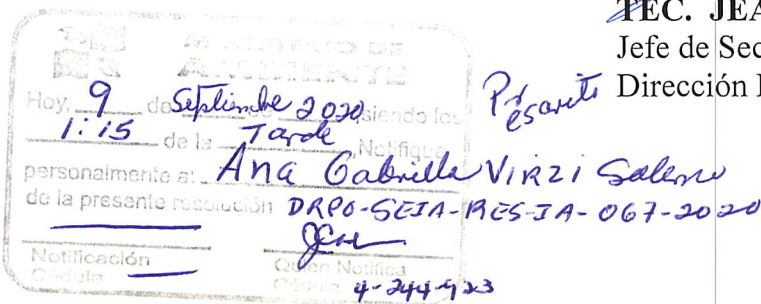 TEC. JEA
Jefe de Sec
Por escrito Dirección
MINISTERIO DE
AMBIENTE
Hoy, 9 de Septiembre 2020 siendo las
1:15 de la Tarde Notifique
personalmente a: Ana Gabriella Virzi Salerno
de la presente resolución DRPO-SEIA-RES-IA-067-2020
Notificación Quien Notifica
Cédula Cédula 4-244-923